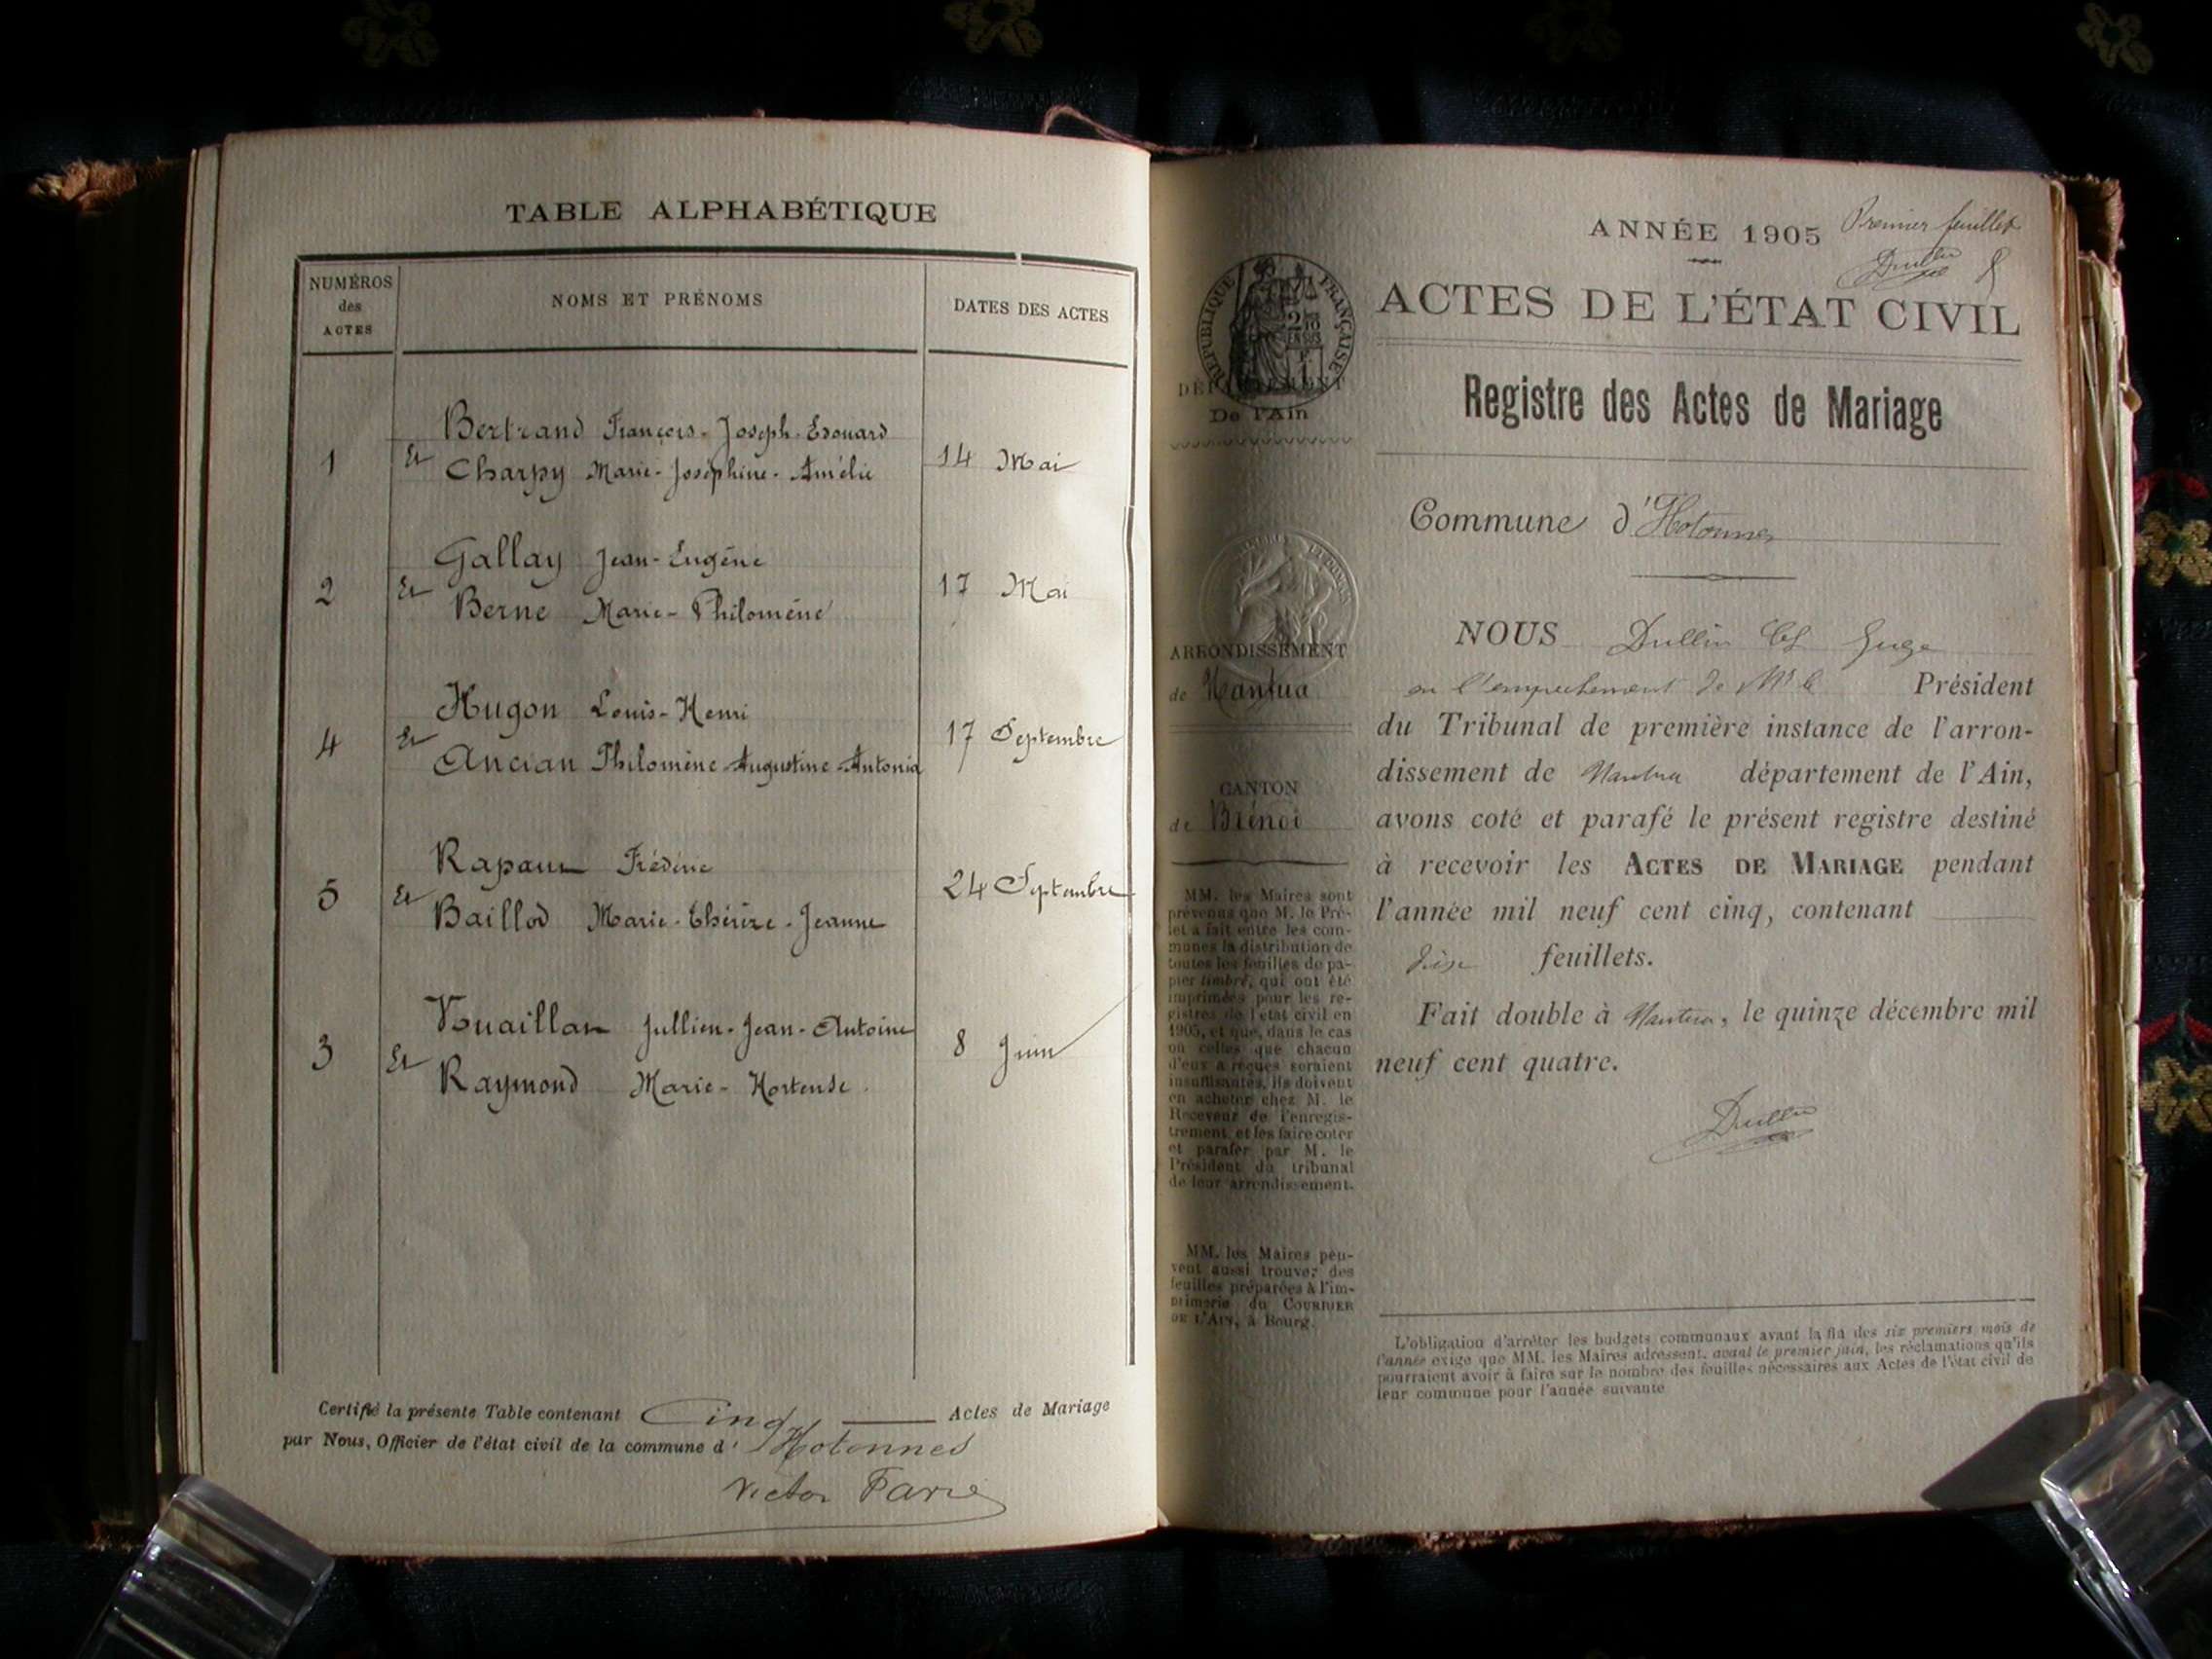 TABLE ALPHABÉTIQUE
NUMÉROS
des
ACTES
NOMS ET PRÉNOMS
DATES DES ACTES
Bertrand François-Joseph-Edouard
1 Et 14 Mai
Charpy Marie-Joséphine-Amélie
Gallay Jean-Eugène
2 Et 17 Mai
Berne Marie-Philomène
Hugon Louis-Henri
4 Et 17 Septembre
Ancian Philomène-Augustine-Antonia
Frédéric
5 Et 24 Septembre
Baillod Marie-Thérèze-Jeanne
Jullien-Jean-Antoine
3 Et 8 Juin
Raymond Marie-Hortense
Certifié la présente Table contenant Cinq Actes de Mariage
par Nous, Officier de l'état civil de la commune d' Hotonnes
Victor
ANNÉE 1905
Premier feuillet
Dullin
RÉPUBLIQUE FRANÇAISE
DÉPARTEMENT
De l'Ain
ARRONDISSEMENT
de Nantua
CANTON
de Brénod
MM. les Maires sont
prévenus que M. le Pré-
fet a fait entre les com-
munes la distribution de
toutes les feuilles de pa-
pier timbré, qui ont été
imprimées pour les re-
gistres de l'état civil en
1905, et que, dans le cas
où celles que chacun
d'eux a reçues seraient
insuffisantes, ils doivent
en acheter chez M. le
Receveur de l'enregis-
trement, et les faire coter
et parafer par M. le
Président du tribunal
de leur arrondissement.
MM. les Maires peu-
vent aussi trouver des
feuilles préparées à l'im-
primerie du COURRIER
DE L'AIN, à Bourg.
ACTES DE L'ÉTAT CIVIL
Registre des Actes de Mariage
Commune d'Hotonnes
NOUS Dullin Juge
en l'empêchement de Mr le Président
du Tribunal de première instance de l'arron-
dissement de Nantua département de l'Ain,
avons coté et parafé le présent registre destiné
à recevoir les ACTES DE MARIAGE pendant
l'année mil neuf cent cinq, contenant
feuillets.
Fait double à Nantua, le quinze décembre mil
neuf cent quatre.
Dullin
L'obligation d'arrêter les budgets communaux avant la fin des six premiers mois de
l'année exige que MM. les Maires adressent, avant le premier juin, les réclamations qu'ils
pourraient avoir à faire sur le nombre des feuilles nécessaires aux Actes de l'état civil de
leur commune pour l'année suivante